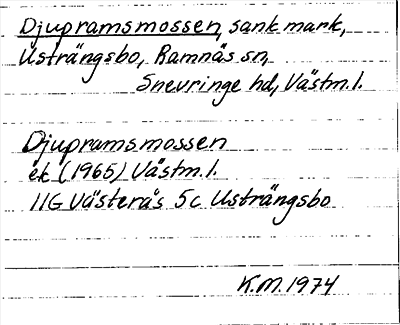 Djupramsmossen, sank mark,
Usträngsbo, Ramnäs sn,
Snevringe hd, Västm.l.
Djupramsmossen
ek (1965) Västm.l.
11G Västerås 5c Usträngsbo
K.M. 1974